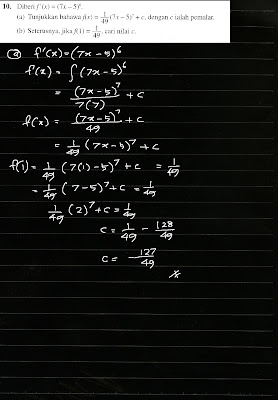 10. Diberi f'(x) = (7x – 5)⁶.
(a) Tunjukkan bahawa f(x) = 1/49 (7x – 5)⁷ + c, dengan c ialah pemalar.
(b) Seterusnya, jika f(1) = 1/49, cari nilai c.
(a) f'(x) = (7x – 5)⁶
f(x) = ∫ (7x – 5)⁶
= (7x – 5)⁷ / 7(7) + c
f(x) = (7x – 5)⁷ / 49 + c
= 1/49 (7x – 5)⁷ + c
f(1) = 1/49 (7(1) – 5)⁷ + c = 1/49
= 1/49 (7 – 5)⁷ + c = 1/49
1/49 (2)⁷ + c = 1/49
c = 1/49 – 128/49
c = – 127/49